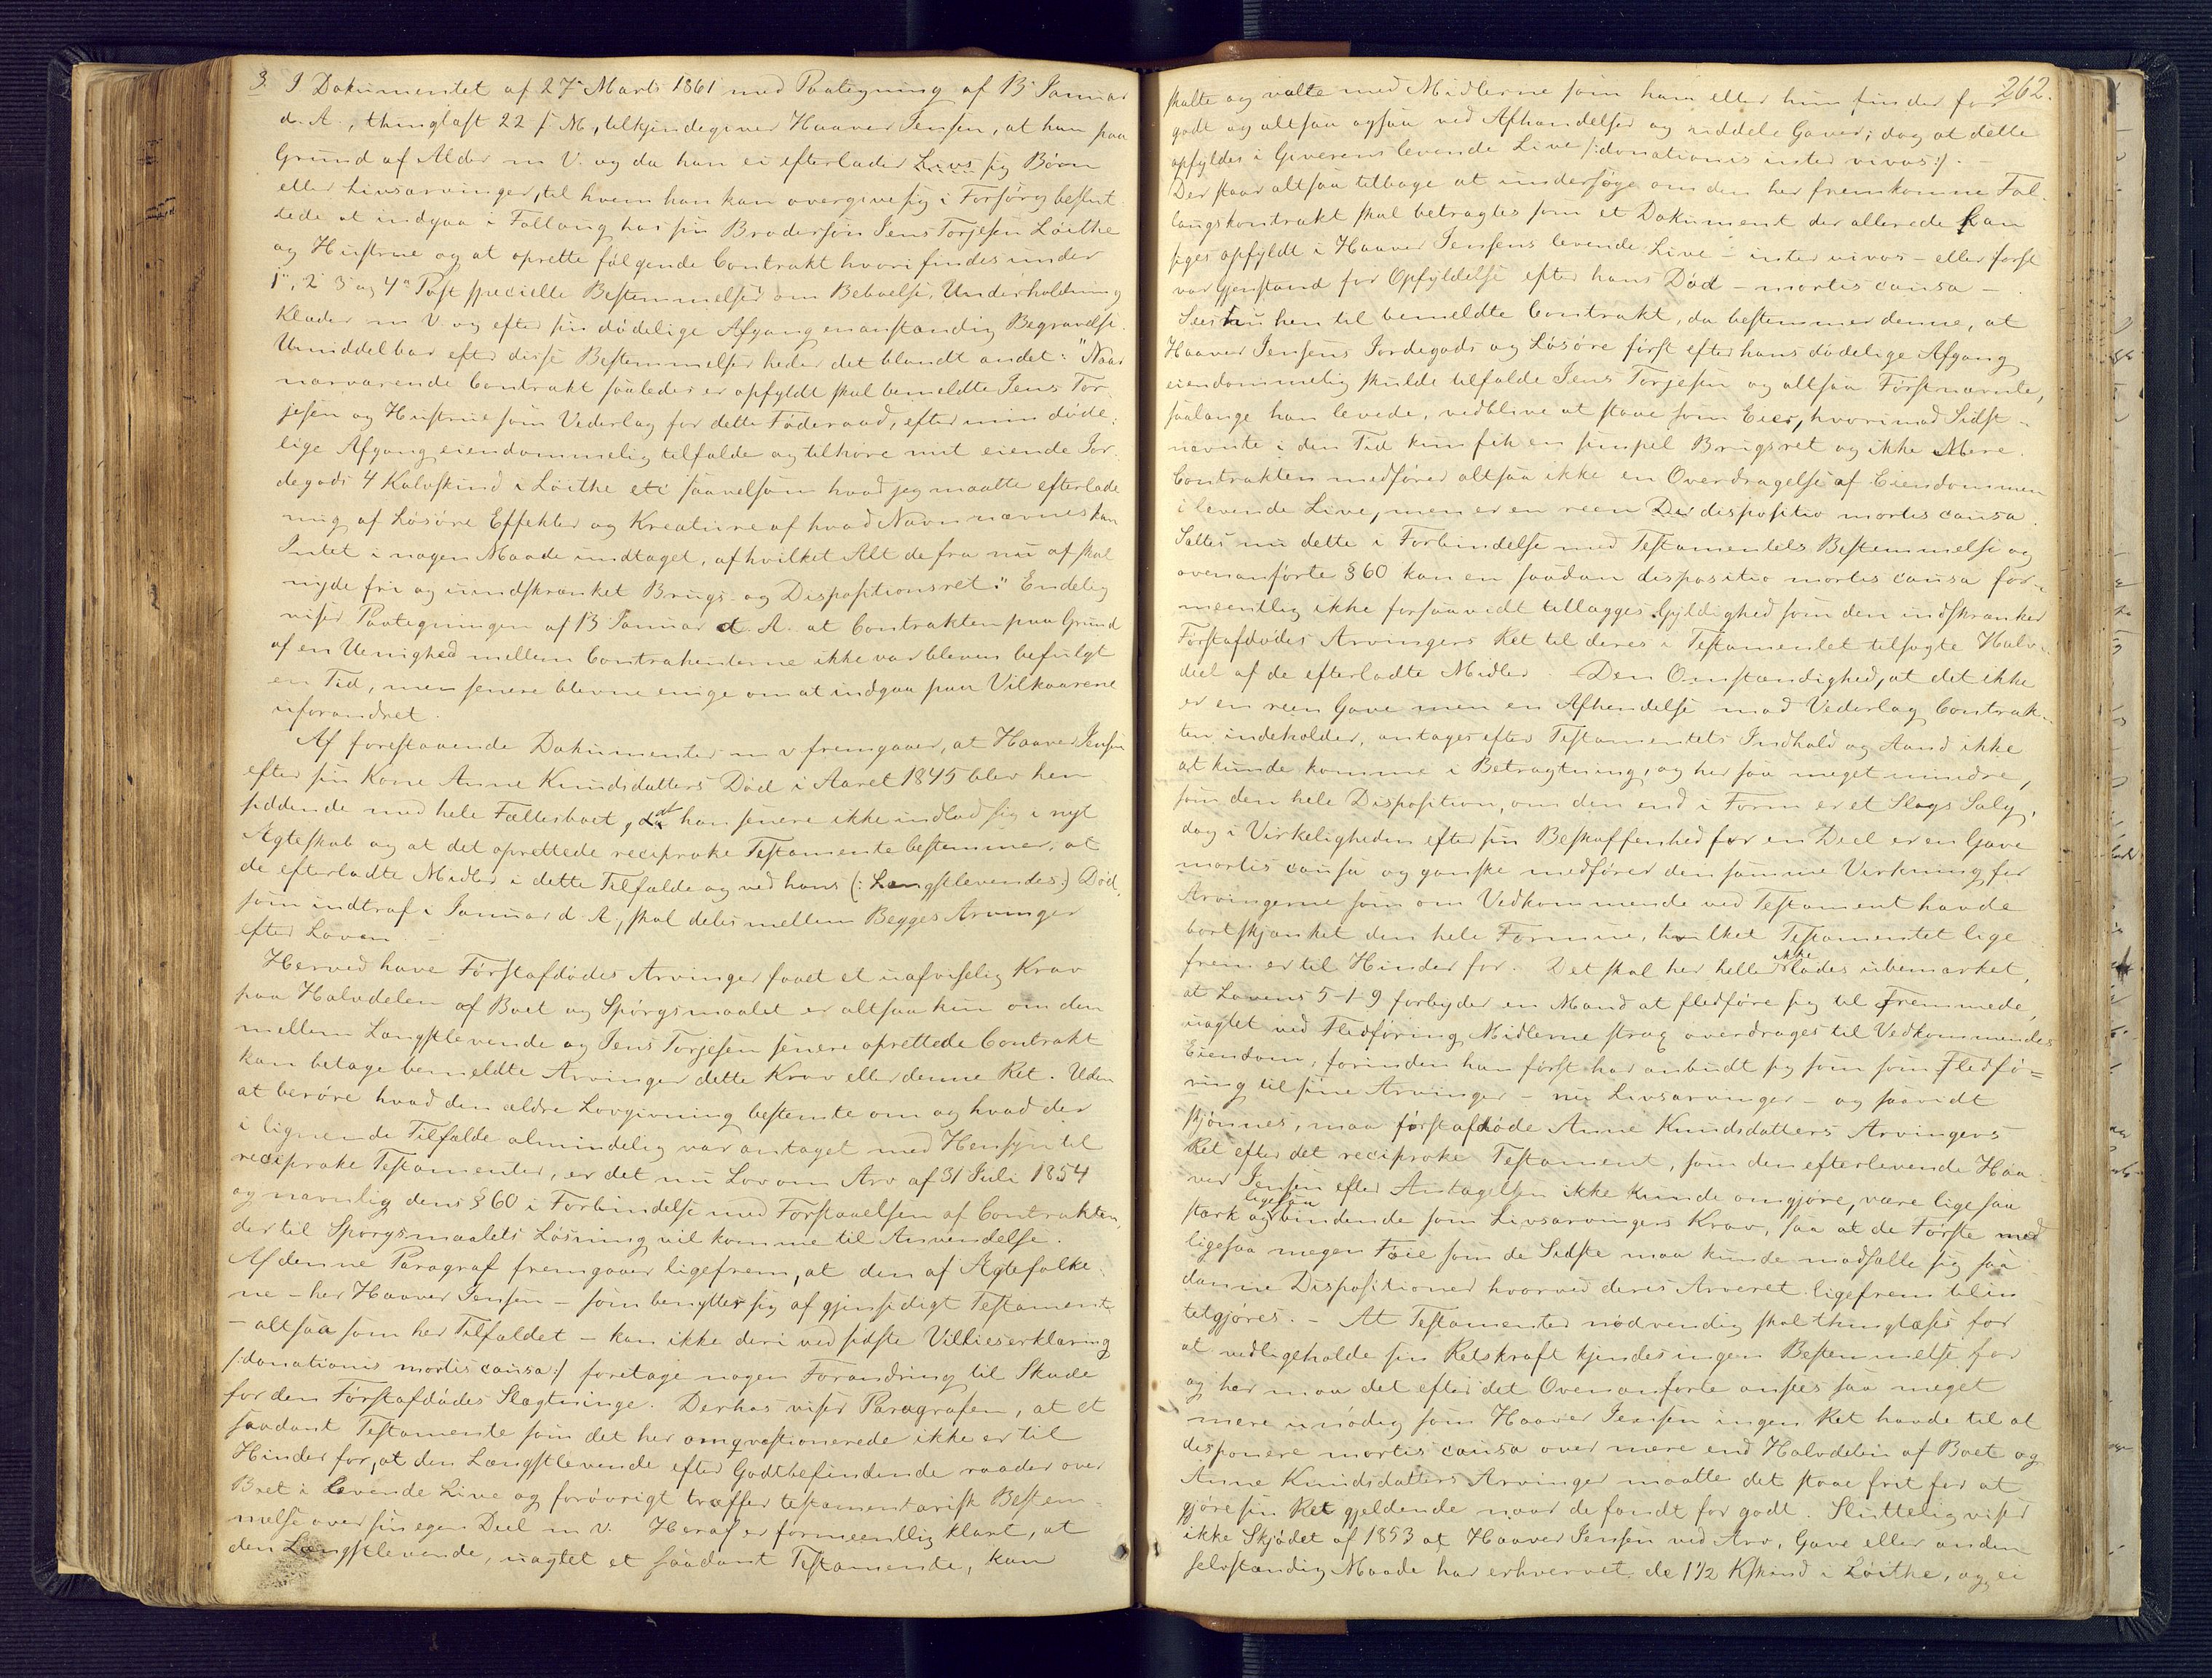 3. I Dokumentet af 27 Marts 1861 med Paategning af 13 Januar
d. A., thinglæst 22 s. M., tilkjendegiver Haaver Jensen, at han paa
Grund af Alder m V. og da han ei efterlader Livs sig Börn
eller Livsarvinger, til hvem han kan overgive sig i Forsörg beslut-
tede at indgaa i Follaug hos sin Brodersön Jens Torjesen Löithe
og Hustrue og at oprette fölgende Contrakt hvori findes under
1", 2" 3" og 4" Post specielle Bestemmelser om Beboelse, Underholdning
Klæder m V. og efter sin dödelige Afgang en anstændig Begravelse.
Umiddelbar efter disse Bestemmelser heder det blandt andet: "Naar
nærværende Contrakt saaledes er opfyldt skal bemeldte Jens Tor-
jesen og Hustrue som Vederlag for dette Föderaad, efter min döde-
lige Afgang eiendommelig tilfalde og tilhöre mit eiende Jor-
degods 4 Kalvskind i Löithe etc saavelsom hvad jeg maatte efterlade
mig af Lösöre Effekter og Kreature af hvad Navn nævnes kan
Intet i nogen Maade undtaget, af hvilket Alt de fra nu af skal
nyde fri og uindskrænket Brugs- og Dispositionsret." Endelig
viser Paategningen af 13 Januar d. A. at Contrakten paa Grund
af en Uenighed mellem Contrahenterne ikke var bleven befulgt
en Tid, men senere blevne enige om at indgaa paa Vilkaarene
uforandret.
Af forestaaende Dokumenter m v fremgaaer, at Haaver Jensen
efter sin Kone Anne Knudsdatters Död i Aaret 1845 blev hen-
siddende med hele Fællesboet, at han senere ikke indlod sig i nyt
Ægteskab og at det oprettede reciproke Testamente bestemmer, at
de efterladte Midler i dette Tilfælde og ved hans (: Længstlevendes:) Död,
som indtraf i Januar d. A., skal deles mellem Begges Arvinger
efter Loven. –
Herved have Förstafdödes Arvinger faaet et uafviselig Krav
paa Halvdelen af Boet og Spörgsmaalet er altsaa kun om den
mellem Længstlevende og Jens Torjesen senere oprettede Contrakt
kan betage bemeldte Arvinger dette Krav eller denne Ret. Uden
at beröre hvad den ældre Lovgivning bestemte om og hvad der
i lignende Tilfælde almindelig var antaget med Hensyn til
reciproke Testamenter, er det nu Lov om Arv af 31 Juli 1854
og navnlig dens § 60 i Forbindelse med Forstaaelsen af Contrakten,
der til Spörgsmaalets Lösning vil komme til Anvendelse.
Af denne Paragraf fremgaaer ligefrem, at den af Ægtefolke-
ne – her Haaver Jensen – som benytter sig af gjensidigt Testament
– altsaa som her Tilfældet – kan ikke deri ved sidste Villieserklæring
/:donationis mortis causa:/ foretage nogen Forandring til Skade
for den Förstafdödes Slægtninge. Derhos viser Paragrafen, at et
saadant Testamente som det her omqvæstionerede ikke er til
Hinder for, at den Længstlevende efter Godtbefindende raader over
Boet i levende Live og forövrigt træffer testamentarisk Bestem-
melse over sin egen Deel m v. Heraf er formeentlig klart, at
den Længstlevende, uagtet et saadant Testamente, kan
262.
skalte og valte med Midlerne som han eller hun finder for
godt og altsaa ogsaa ved Afhændelse og uddele Gaver; dog at dette
opfyldes i Giverens levende Live /:donationis inter vivos:/.
Der staar altsaa tilbage at undersöge om den her fremkomne Fol-
laugskontrakt skal betragtes som et Dokument der allerede kan
siges opfyldt i Haaver Jensens levende Live – inter vivos – eller först
var Gjenstand for Opfyldelse efter hans Död – mortis causa – .
Sees nu hen til bemeldte Contrakt, da bestemmer denne, at
Haaver Jensens Jordegods og Lösöre först efter hans dödelige Afgang
eiendommelig skulde tilfalde Jens Torjesen og altsaa Förstnævnte,
saalænge han levede, vedblive at staae som Eier, hvorimod Sidst-
nævnte i den Tid kun fik en simpel Brugsret og ikke Mere.
Contrakten medförer altsaa ikke en Overdragelse af Eiendommen
i levende Live, men er en reen dispositio mortis causa.
Sættes nu dette i Forbindelse med Testamentets Bestemmelse og
ovenanförte § 60 kan en saadan dispositio mortis causa for-
meentlig ikke forsaavidt tillægges Gyldighed som den indskrænker
Förstafdödes Arvingers Ret til deres i Testamentet tilsagte Halv-
deel af de efterladte Midler. Den Omstændighed, at det ikke
er en reen Gave men en Afhendelse mod Vederlag Contrak-
ten indeholder, antages efter Testamentets Indhold og Aand ikke
at kunde komme i Betragtning, og her saa meget mindre,
som den hele Disposition, om den end i Form er et Slags Salg,
dog i Virkeligheden efter sin Beskaffenhed for en Deel er en Gave
mortis causa og ganske medförer den samme Virkning for
Arvingerne som om Vedkommende ved Testament havde
bortskjænket den hele Formue, hvilket Testamentet lige-
frem er til Hinder for. Det skal her heller ikke lades ubemærket,
at Lovens 5-1-9 forbyder en Mand at fledföre sig til Fremmede,
uagtet ved Fledföring Midlerne strax overdrages til Vedkommendes
Eiendom, forinden han först har anbudt sig som som Fledfö-
ring til sine Arvinger – nu Livsarvinger – og saavidt
skjönnes, maa förstafdöde Anne Knudsdatters Arvingers
Ret efter det reciproke Testament, som den efterlevende Haa-
ver Jensen efter Antagelsen ikke kunde omgjöre, være ligesaa
stærk og ligesaa bindende som Livsarvingers Krav, saa at de Förste med
ligesaa megen Föie som de Sidste maa kunde modsætte sig saa-
danne Dispositioner hvorved deres Arveret ligefrem tilin-
tetgjöres. – At Testamenter nödvendig skal thinglæses for
at vedligeholde sin Retskraft kjendes ingen Bestemmelse for
og her maa det efter det Ovenanförte ansees saa meget
mere unödig som Haaver Jensen ingen Ret havde til at
disponere mortis causa over mere end Halvdelen af Boet og
Anne Knudsdatters Arvinger maatte det staae frit for at
gjöre sin Ret gjeldende naar de fandt for godt. Sluttelig viser
ikke Skjödet af 1853 at Haaver Jensen ved Arv, Gave eller anden
selvstændig Maade har erhvervet de 1 1/2 Kskind i Löithe, og ei